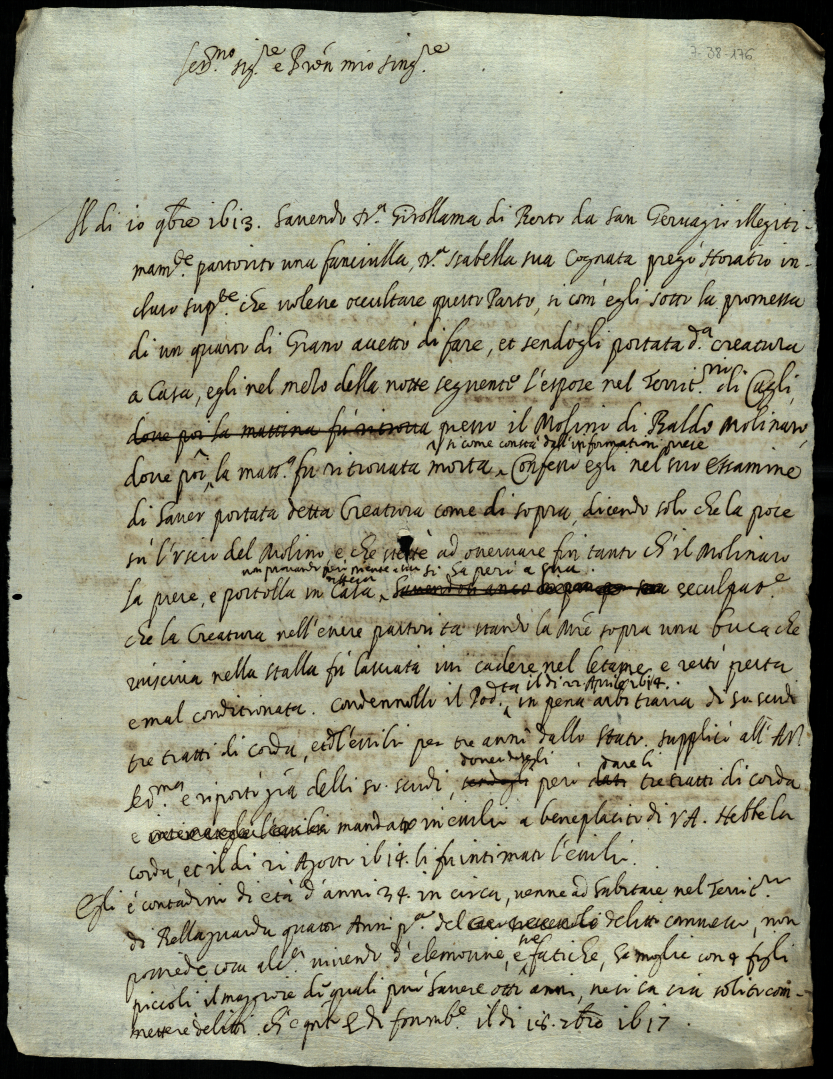 7-38-176
Ser.mo sig.re e Pron mio sing.re
Il di 10 9bre 1613. havendo d.a Girollama di Berto da San Gervagio illegiti-
mam.te partorito una fanciulla, d.a Isabella sua Cognata pregò Horatio in-
cluso sup.te che volesse occultare questo Parto, si com'egli sotto la promessa
di un quarto di Grano accettò di fare, et sendogli portata d.a creatura
a Casa, egli nel mezo della notte seguente l'espose nel Territ.rio di Cagli,
dove poi la mattina fu ritrova presso il Molino di Baldo Molinaro,
si come consta dall'informationi prese
dove poi la matt.a fu ritrovata morta, Confessò egli nel suo Essamine
di haver portata detta Creatura come di sopra, dicendo solo che la pose
su l'Uscio del Molino e che stette ad osservare fin tanto ch'il Molinaro
non provando però niente a sua
la prese, e portolla in Casa, si saperi a sua seculpat.e
che la Creatura nell'essere partorita stando la Mre sopra una buca che
usciva nella stalla fu lasciata ivi cadere nel letame e restò pesta
e mal conditionata. Condennollo il Pod.tà il di 22 Aprile 1614. in pena arbitraria di 50 scudi
tre tratti di corda, et d'essilio per tre anni dallo stato. supplicò all'A.V.
Ser.ma e riportò gra delli 50 scudi, dovendosegli però dare li tre tratti di corda
e mandato in essilio a beneplacito di V.A. Hebbe la
corda, et il di 21 Agosto 1614. li fu intimato l'essilio.
Egli è contadino di età d'anni 34 in circa, venne ad habitare nel Territ.rio
di Bellaguarda quatro Anni p.a del delitto commesso, non
possiede cosa alc.a vivendo d'elemosine, e sue fatiche, ha moglie con 4 figli
piccoli il maggiore de quali può havere otto anni, ne si sa sia solito com-
mettere delitti. di Fossomb.e il di 18. xbre 1617.